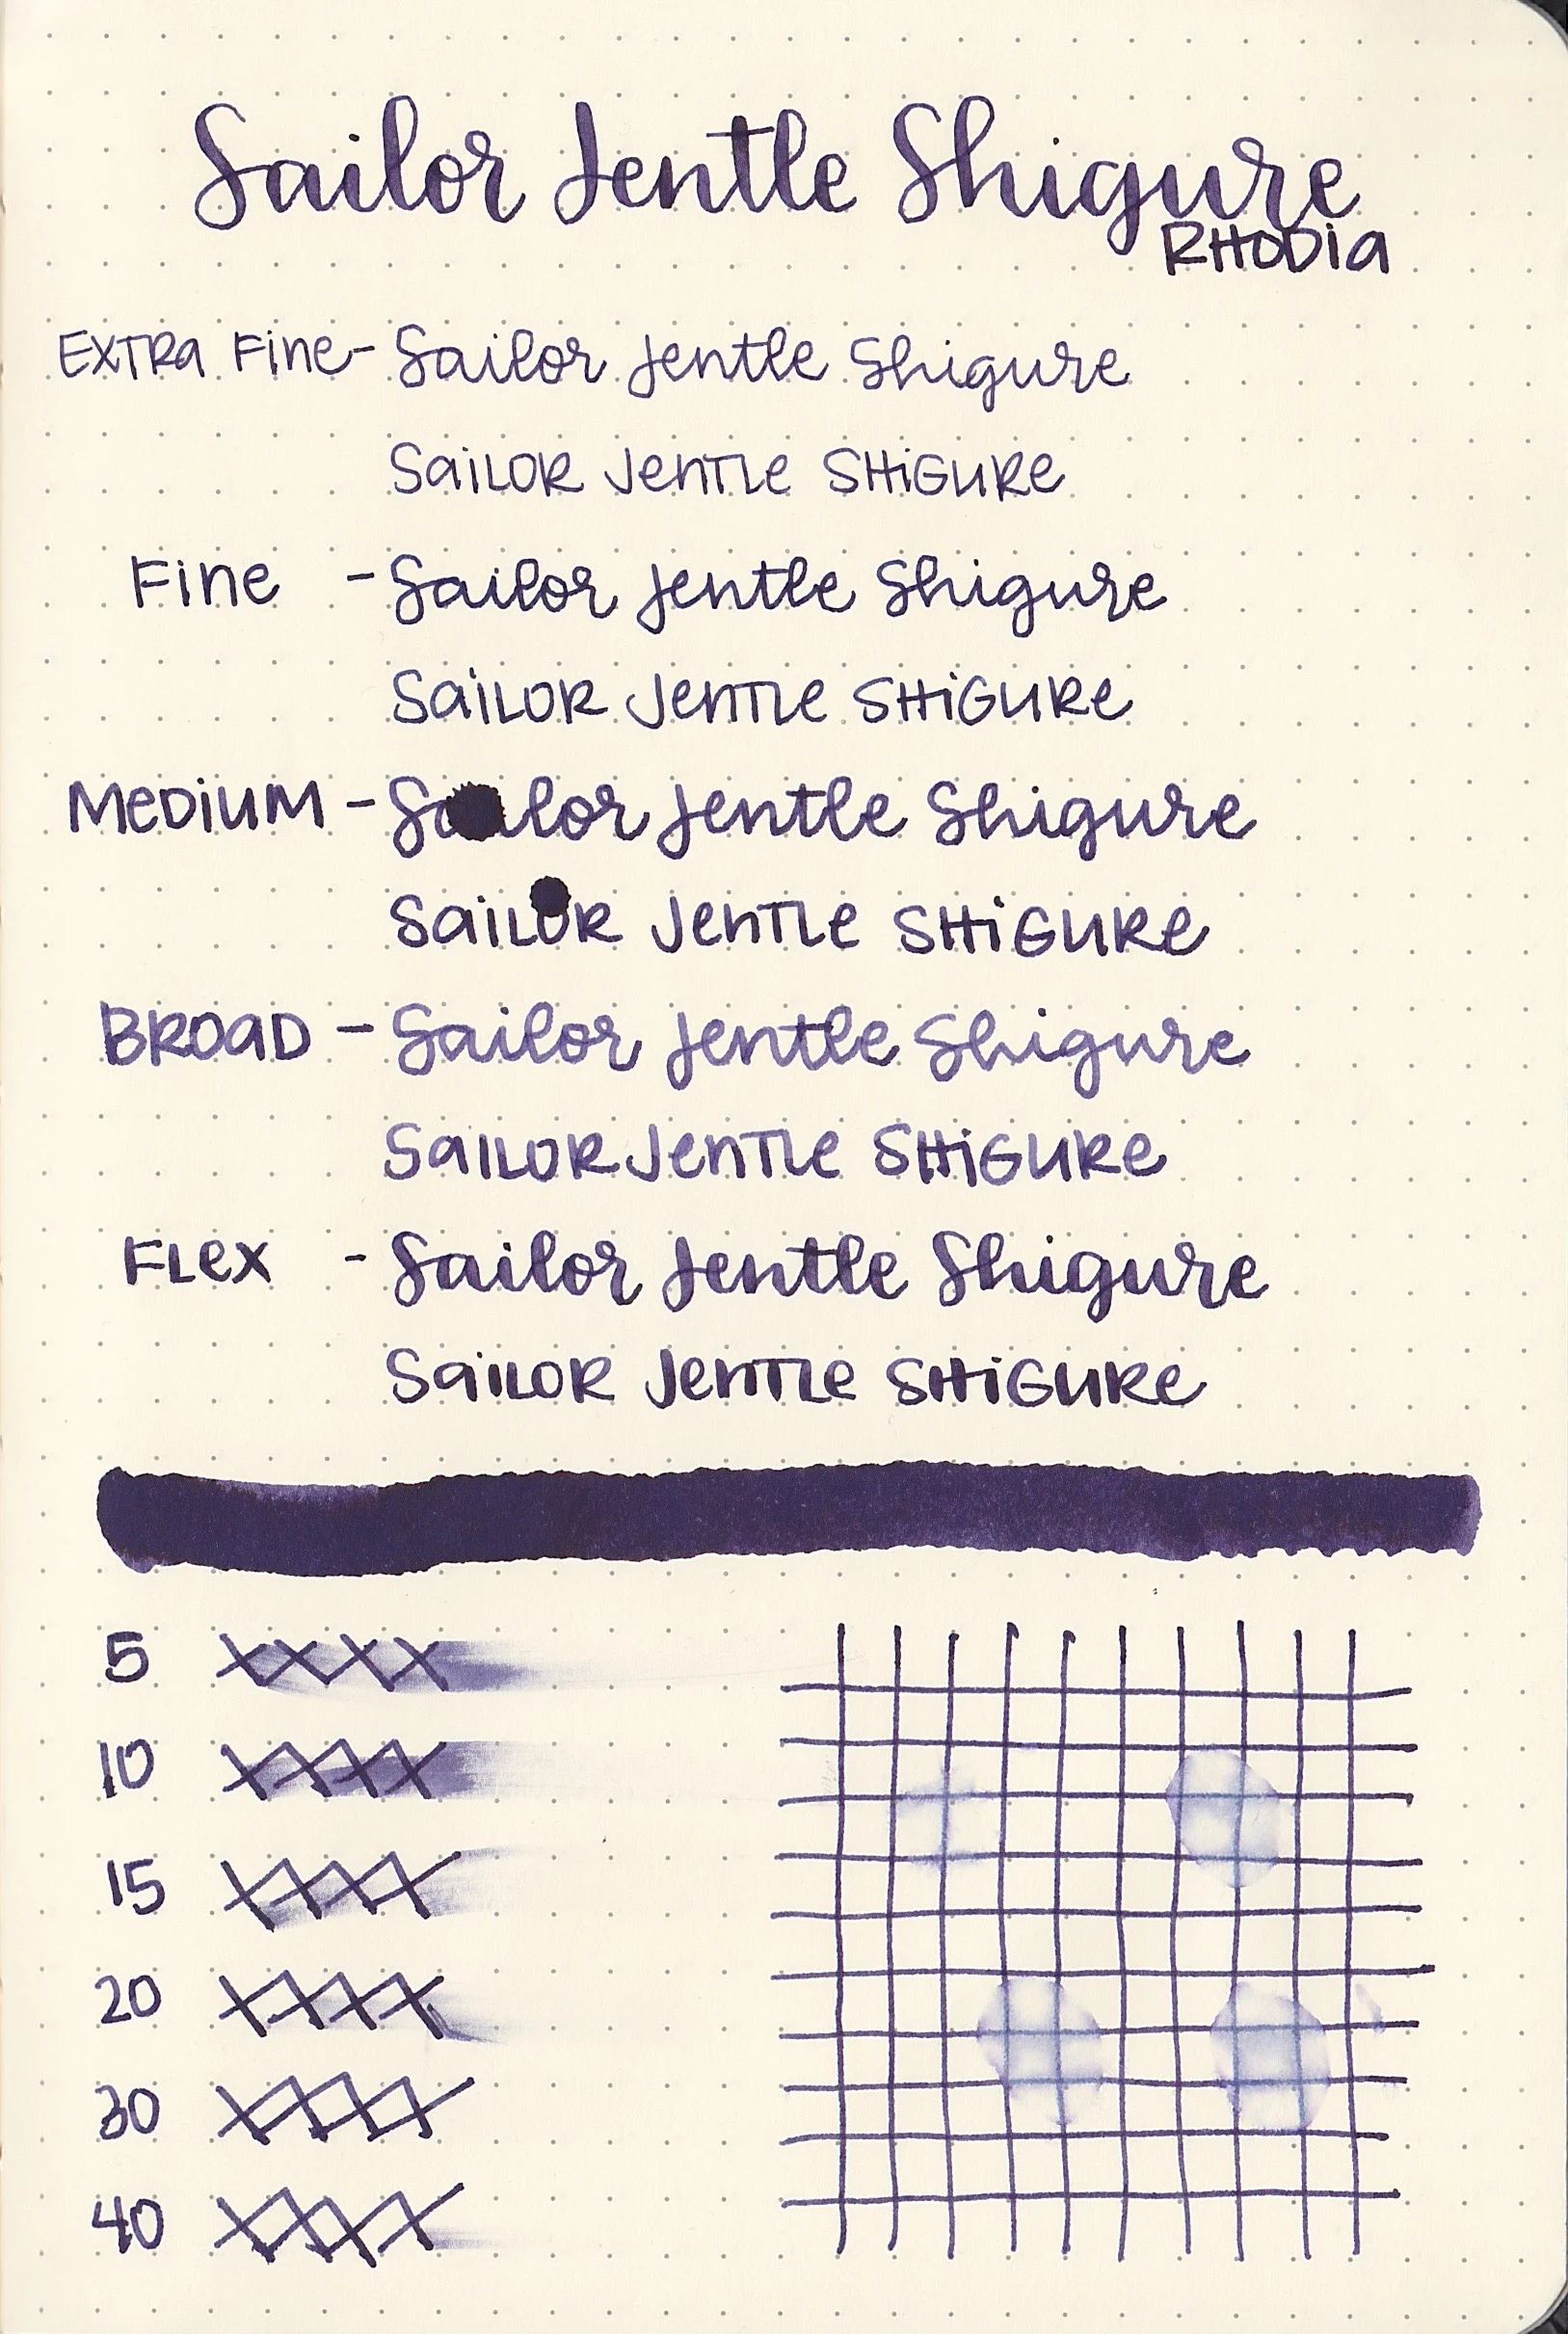 Sailor Jentle Shigure
RHODIA
EXTRA FINE - Sailor Jentle Shigure
SAILOR JENTLE SHIGURE
FINE - Sailor Jentle Shigure
SAILOR JENTLE SHIGURE
MEDIUM - Sailor Jentle Shigure
SAILOR JENTLE SHIGURE
BROAD - Sailor Jentle Shigure
SAILOR JENTLE SHIGURE
FLEX - Sailor Jentle Shigure
SAILOR JENTLE SHIGURE
5
10
15
20
30
40